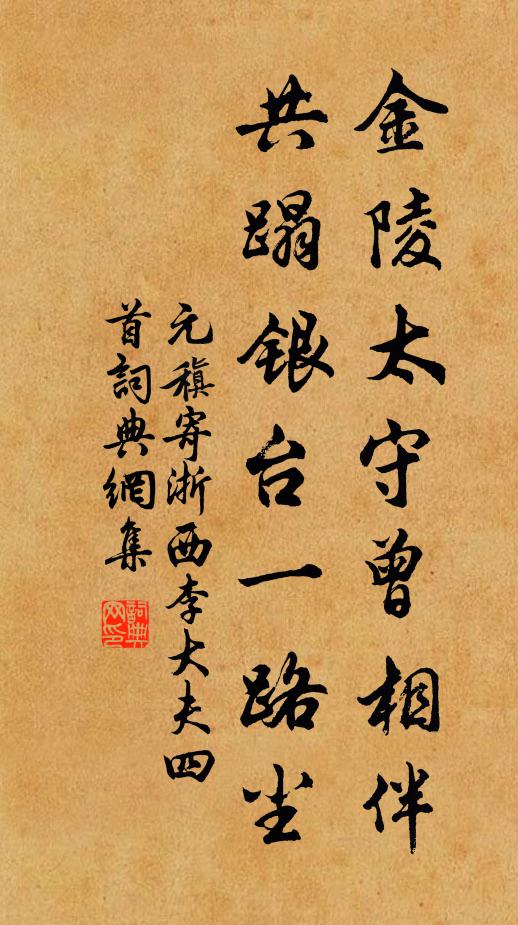 金陵太守曾相伴
共蹋銀台一路尘
元稹寄浙西李大夫四
首詞典網集
詞典
网印